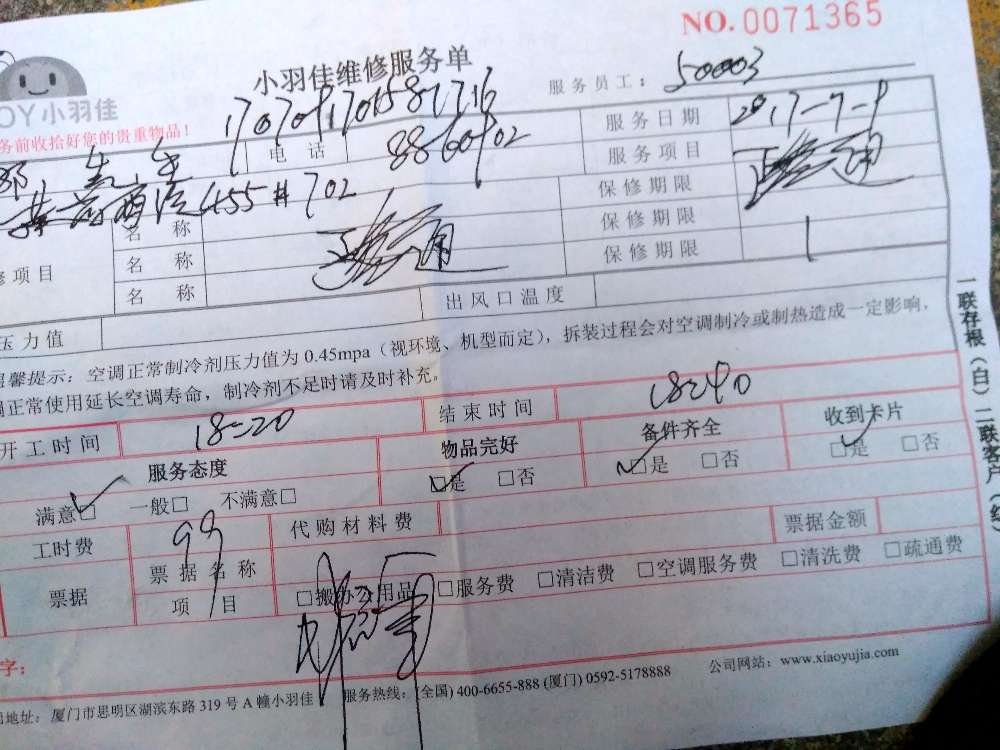 NO.0071365
小羽佳维修服务单
服务员工: 50003
OY小羽佳
务前收拾好您的贵重物品!
先生
电 话
8860902
服务日期 2017-7-9
服务项目
455#702
保修期限
名 称
保修期限
修项目
名 称
保修期限 1
名 称
压力值
出风口温度
馨提示: 空调正常制冷剂压力值为 0.45mpa (视环境、机型而定), 拆装过程会对空调制冷或制热造成一定影响,
调正常使用延长空调寿命, 制冷剂不足时请及时补充。
开工时间 18=20 结束时间 18=40
服务态度 物品完好 备件齐全 收到卡片
满意□ 一般□ 不满意□ □是 □否 □是 □否 □是 □否
工时费 99 代购材料费 票据金额
票据 票据名称
项 目 □搬 办公用品 □服务费 □清洁费 □空调服务费 □清洗费 □疏通费
字:
地址: 厦门市思明区湖滨东路 319 号 A 幢小羽佳 服务热线: (全国) 400-6655-888 (厦门) 0592-5178888 公司网站: www.xiaoyujia.com
一联存根(白) 二联客户(红